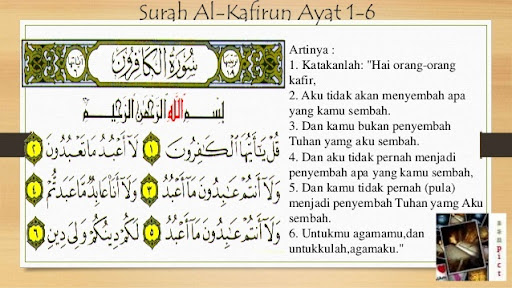 Surah Al-Kafirun Ayat 1-6
سُورَةُ الْكَافِرُونَ
بِسْمِ اللَّهِ الرَّحْمَٰنِ الرَّحِيمِ
قُلْ يَا أَيُّهَا الْكَافِرُونَ ١ لَا أَعْبُدُ مَا تَعْبُدُونَ ٢
وَلَا أَنْتُمْ عَابِدُونَ مَا أَعْبُدُ ٣ وَلَا أَنَا عَابِدٌ مَا عَبَدْتُمْ ٤
وَلَا أَنْتُمْ عَابِدُونَ مَا أَعْبُدُ ٥ لَكُمْ دِينُكُمْ وَلِيَ دِينِ ٦
Artinya :
1. Katakanlah: "Hai orang-orang
kafir,
2. Aku tidak akan menyembah apa
yang kamu sembah.
3. Dan kamu bukan penyembah
Tuhan yamg aku sembah.
4. Dan aku tidak pernah menjadi
penyembah apa yang kamu sembah,
5. Dan kamu tidak pernah (pula)
menjadi penyembah Tuhan yamg Aku
sembah.
6. Untukmu agamamu,dan
untukkulah,agamaku."
sanpict